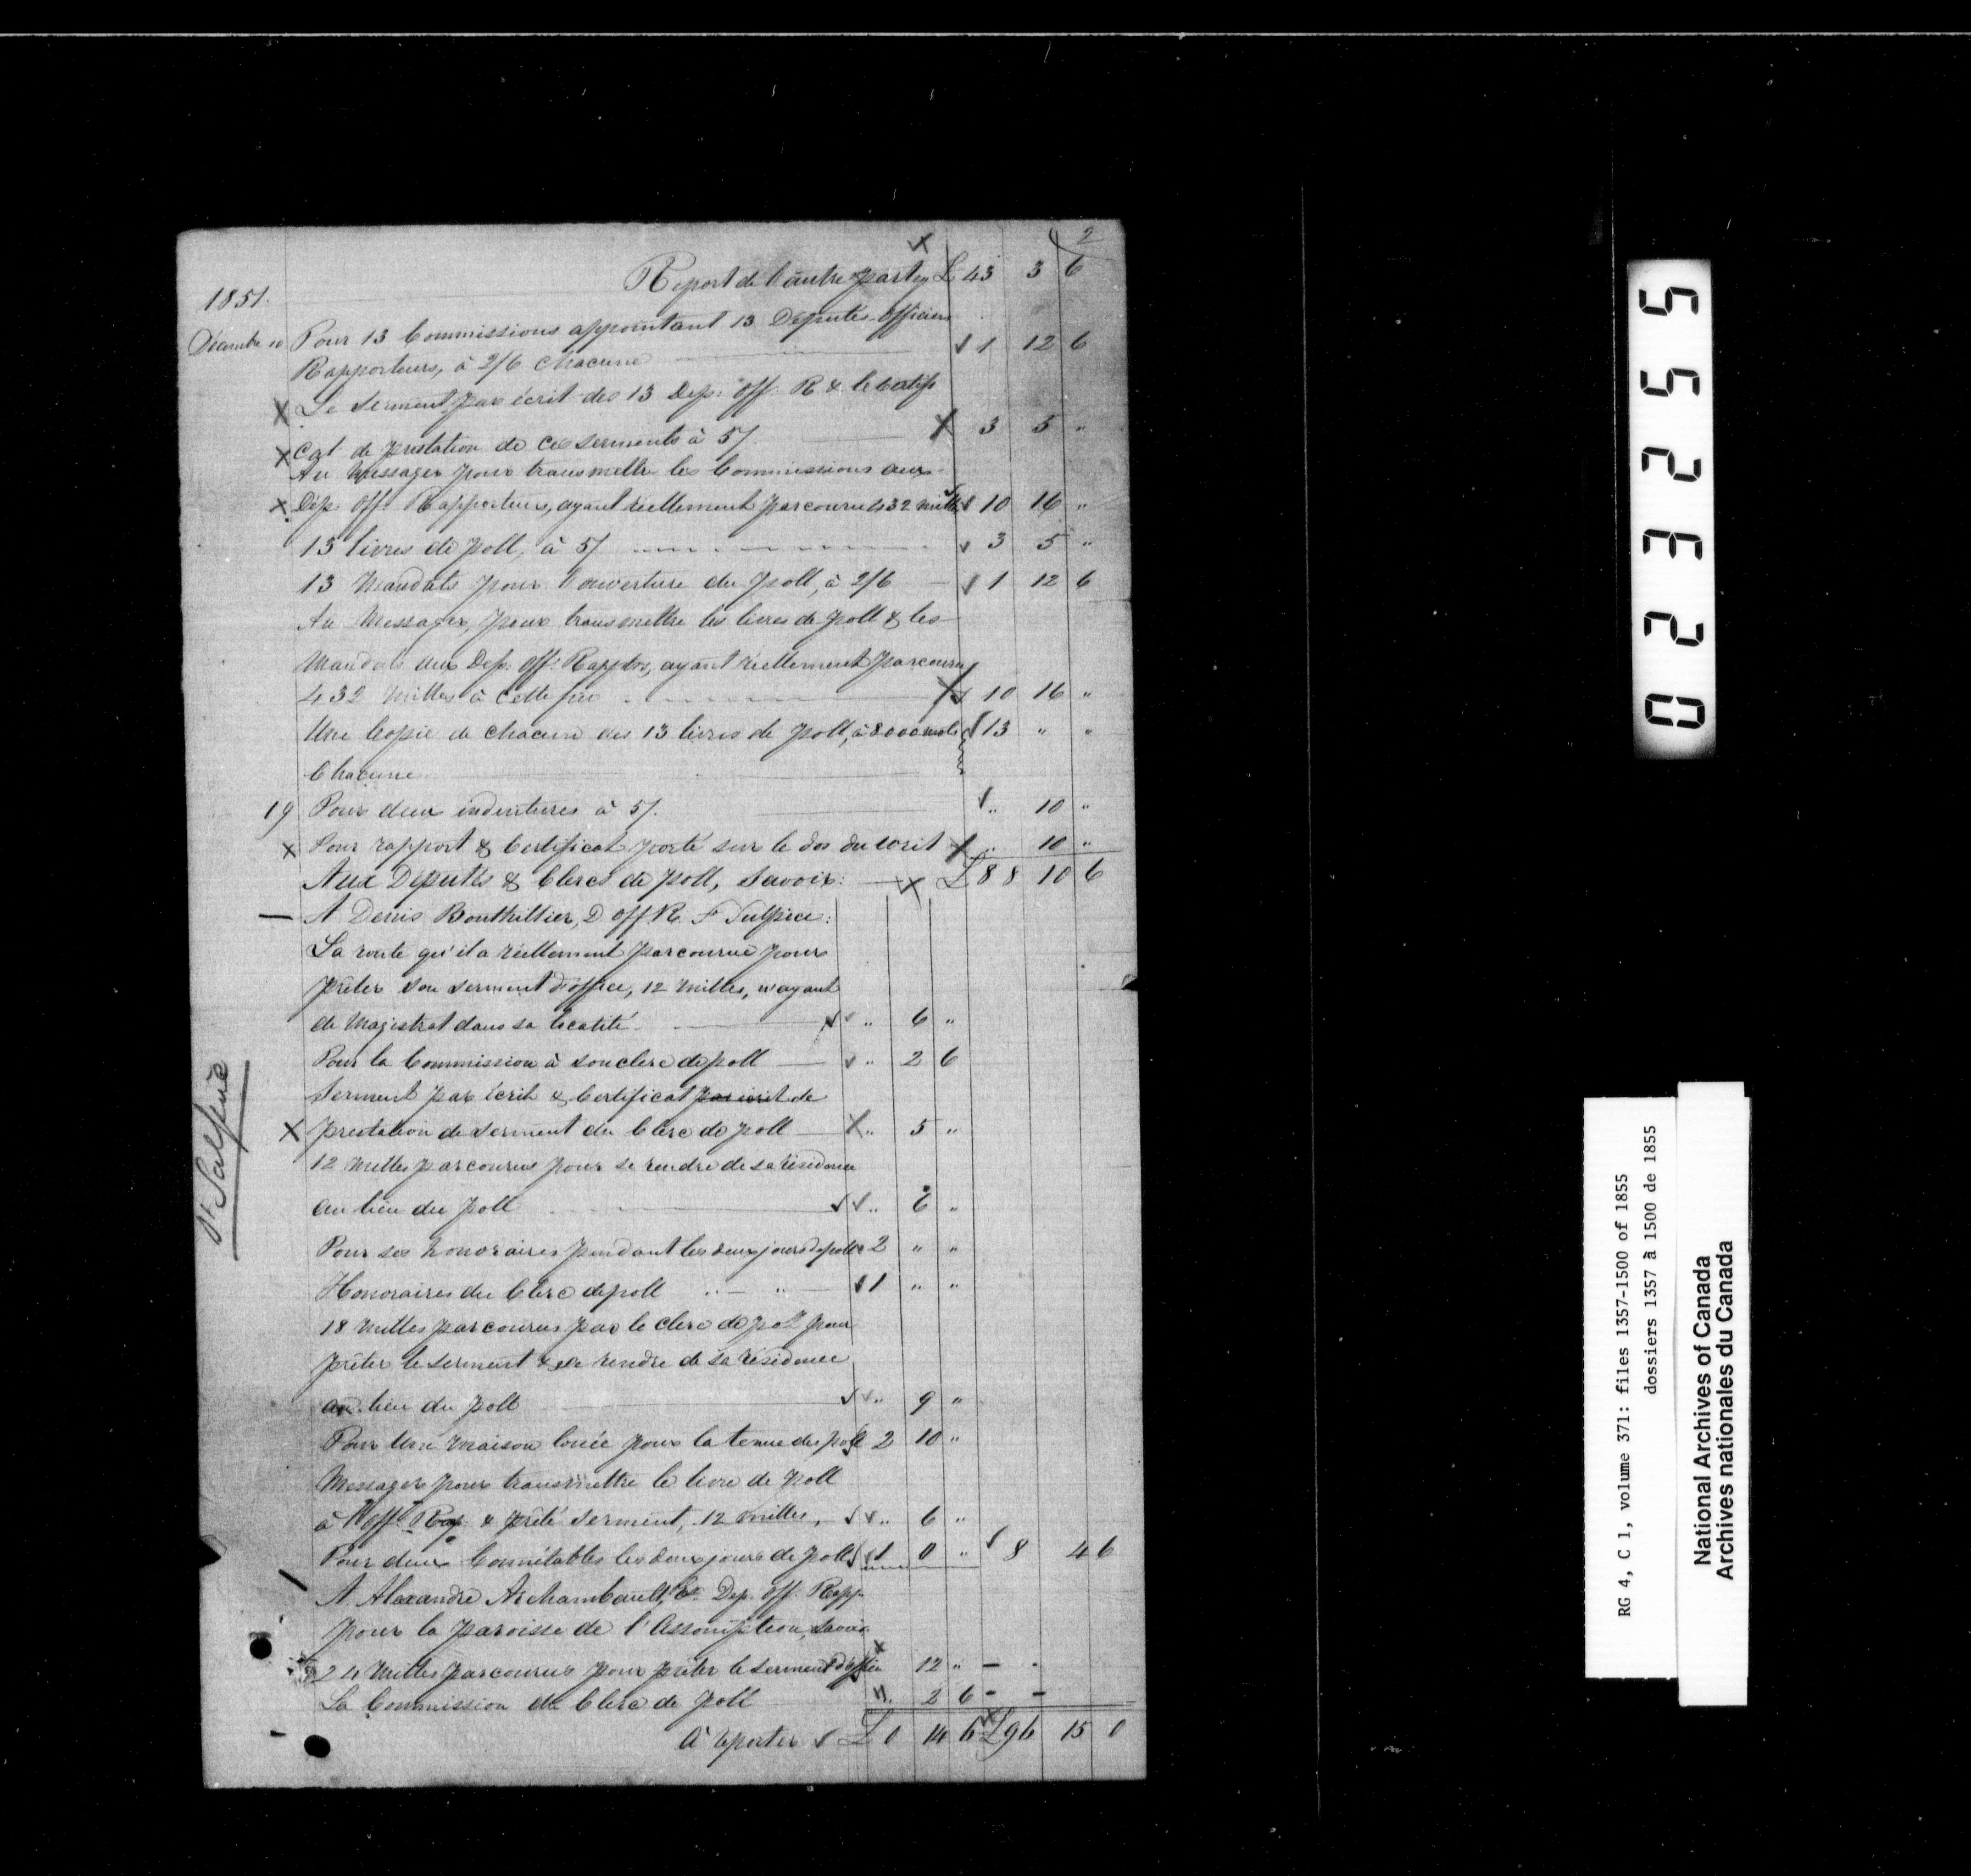 2
Report de l'autre part £ 43 3 6
1851.
Décembre 10 Pour 13 Commissions appointant 13 Députés-Officiers
Rapporteurs, à 2/6 chacune 1 12 6
Le serment par écrit des 13 Dep: Off: R & le certifi
cat de prestation de ces serments à 5/ 3 5 "
Au Messager pour transmettre les Commissions aux
Dép. Off. Rapporteurs, ayant réellement parcouru 432 milles 10 16 "
13 livres de poll, à 5/ 3 5 "
13 Mandats pour l'ouverture du poll, à 2/6 1 12 6
Au Messager, pour transmettre les livres de poll & les
Mandats aux Dep: Off: Rapptrs, ayant réellement parcouru
432 Milles à cette fin 10 16 "
Une Copie de chacun des 13 livres de poll, à 8000 mots 13 " "
Chacune
19 Pour deux indentures à 5/. " 10 "
Pour rapport & Certificat porté sur le dos du writ " 10 "
Aux Députés & Clercs de poll, Savoir: £ 88 10 6
A Denis Bouthillier, D Off R. St Sulpice:
La route qu'il a réellement parcourue pour
prêter son serment d'office, 12 milles, n'ayant
de Magistrat dans sa localité " 6 "
Pour la Commission à son clerc de poll " 2 6
Serment par écrit & Certificat par écrit de
prestation de serment du Clerc de poll " 5 "
12 Milles parcourus pour se rendre de sa résidence
au lieu du poll " 6 "
Pour ses honoraires pendant les deux jours de poll 2 " "
Honoraires du Clerc de poll " " 1 " "
18 Milles parcourus par le clerc de poll pour
prêter le serment & se rendre de sa résidence
au lieu du poll " 9 "
Pour une maison louée pour la tenue du poll 2 10 "
Messager pour transmettre le livre de poll
à l'Off. Rap. & prêté serment, 12 milles, " 6 "
Pour deux Connétables les deux jours de poll 1 0 " 8 4 6
A Alexandre Archambault, Dep. Off. Rapp.
pour la paroisse de l'Assomption, Savoir
24 Milles parcourus pour prêter le serment d'office 12 " - -
La Commission du Clerc de poll " 2 6 - -
à reporter £ 0 14 6 £ 96 15 0
St Sulpice
02325 5
RG 4, C 1, volume 371: files 1357-1500 of 1855
dossiers 1357 à 1500 de 1855
National Archives of Canada
Archives nationales du Canada